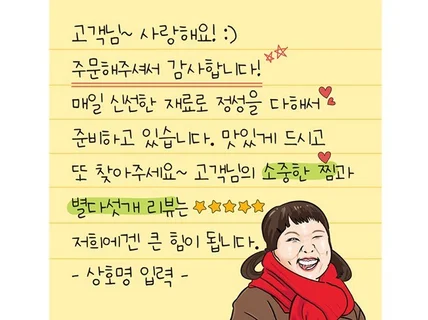 고객님~ 사랑해요! :)
주문해주셔서 감사합니다!
매일 신선한 재료로 정성을 다해서
준비하고 있습니다. 맛있게 드시고
또 찾아주세요~ 고객님의 소중한 찜과
별다섯개 리뷰는
저희에겐 큰 힘이 됩니다.
- 상호명 입력 -